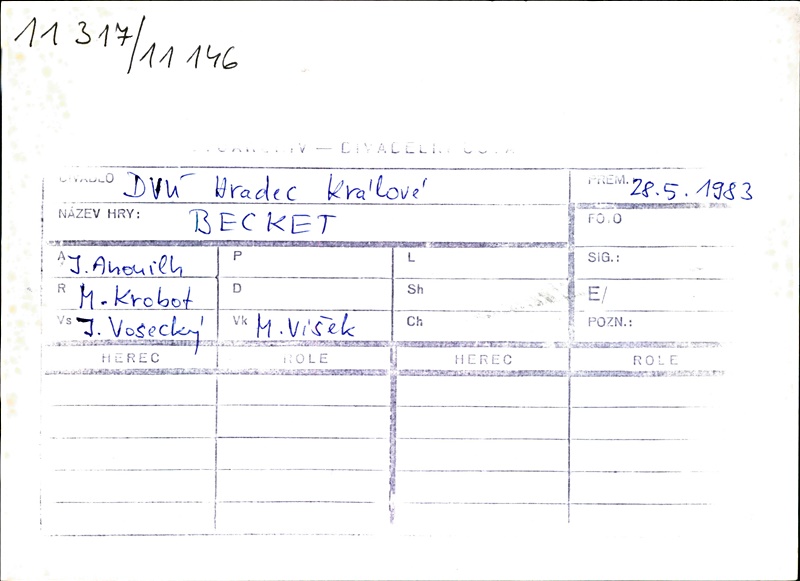 11 317/11 146
— DIVADELNÍ
DIVADLO DVÚ Hradec Králové PREM. 28.5. 1983
NÁZEV HRY: BECKET FOTO
A J. Anouilh P L SIG.:
R M. Krobot D Sh E/
Vs J. Vosecký Vk M. Víšek Ch POZN.:
HEREC ROLE HEREC ROLE